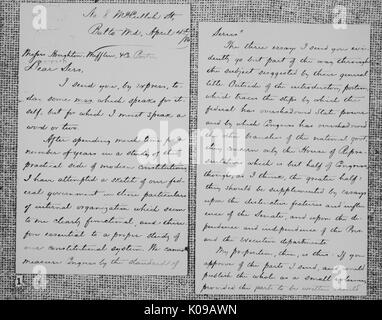 No 8 McCulloh St,
Balto Md, April 4th
Messrs Houghton, Mifflin & Co
Dear Sirs,
I send you, by express, to-
day some mss. which speaks for it-
self, but for which I must speak a
word or two.
After spending much time for a
number of years in a study of the
practical side of modern constitutions,
I have attempted a sketch of our fed-
eral government in those particulars
of internal organization which seem
to me clearly functional, and there-
fore essential to a proper study of
our constitutional system. We cannot
measure Congress by the standards of
Series"
The three essays I send you evi-
dently go but part of the way through
the subject suggested by their general
title. Outside of the introductory portion,
which traces the steps by which the
federal has overshadowed State powers
and by which Congress has overshadowed
the other branches of the national government,
they concern only the House of Repre-
sentatives which is but half of Congress
though, as I think, the greater half.
They should be supplemented by essays
upon the distinctive features and influ-
ence of the Senate, and upon the de-
pendence and independence of the Pres.
and the Executive departments.
My proposition, then, is this: If you
approve of the parts I send, and would
publish the whole as a small volume,
provided the parts to be written
1
alamy
K09AWN